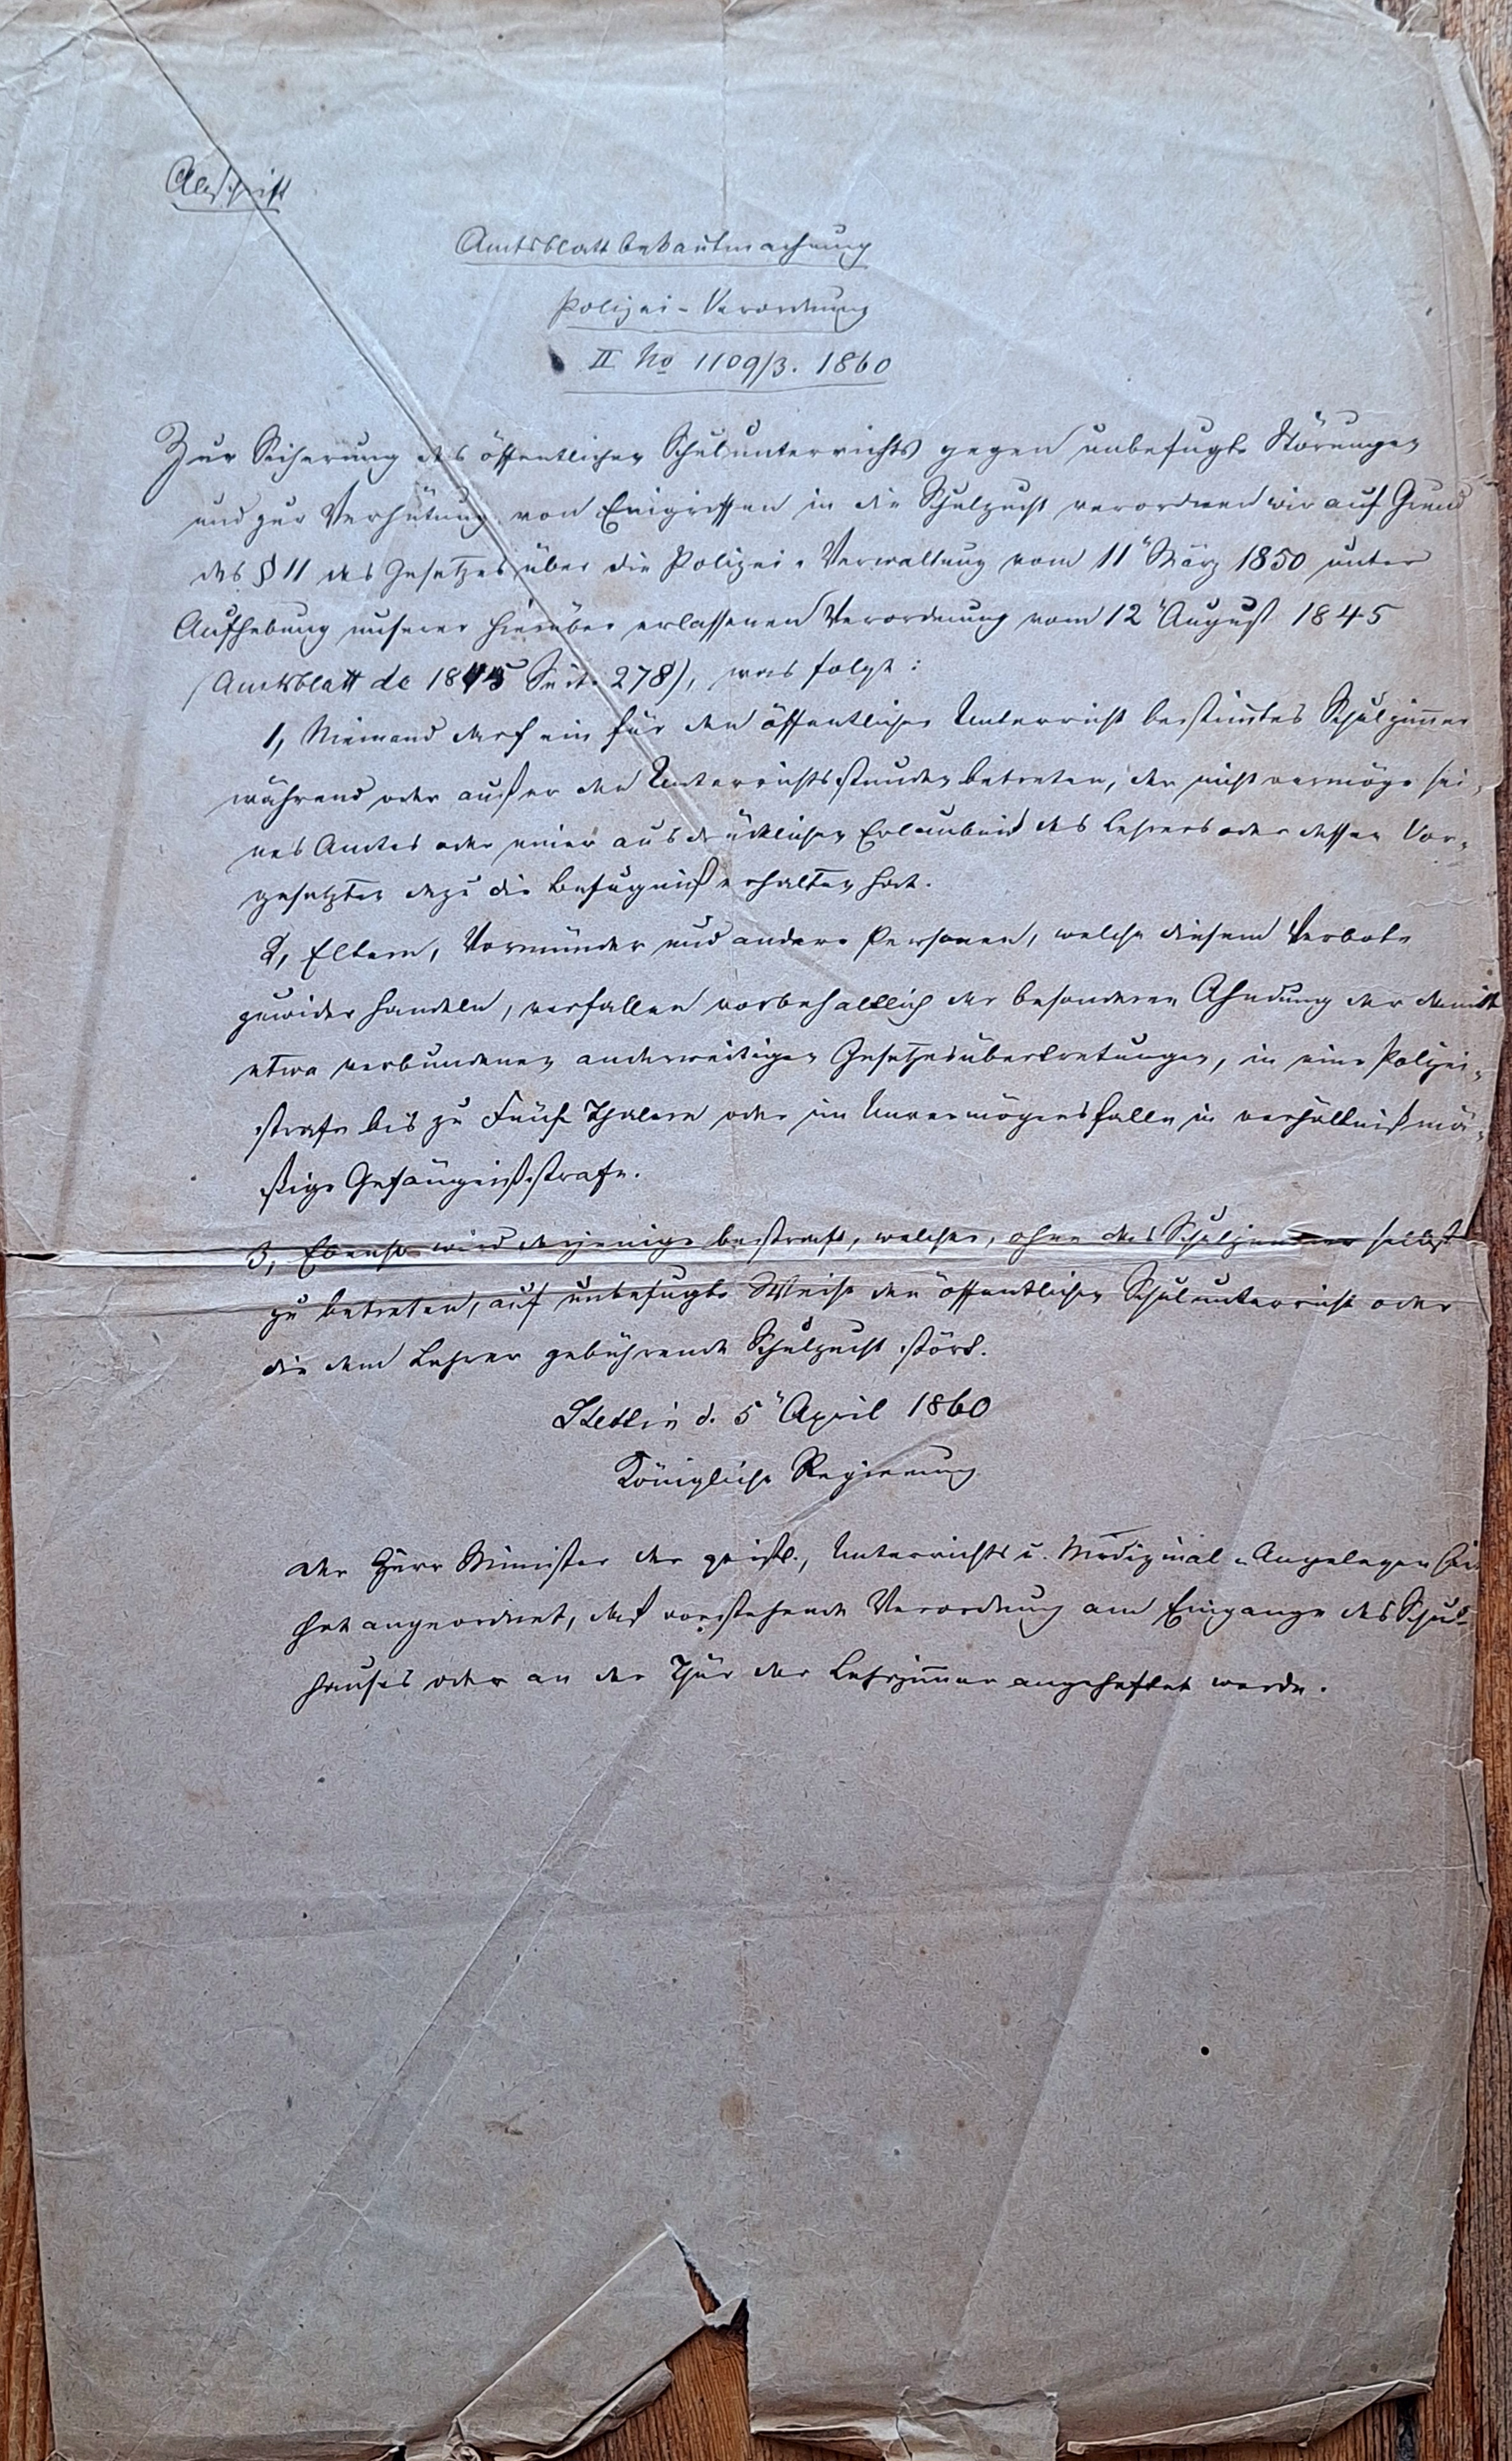 Abschrift
Amtsblattbekantmachung
Polizei-Verordnung
II No 1109/3. 1860
Zur Sicherung des öffentlichen Schulunterrichts gegen unbefugte Störungen
und zur Verhütung von Eingriffen in die Schulzucht verordnen wir auf Grund
des § 11 des Gesetzes über die Polizei-Verwaltung vom 11" März 1850 unter
Aufhebung unserer hierüber erlassenen Verordnung vom 12" August 1845
(Amtsblatt de 1845 Seite 278), was folgt:
1, Niemand darf ein für den öffentlichen Unterricht bestimtes Schulzimmer
während oder außer den Unterrichtsstunden betreten, der nicht vermöge sei-
nes Amtes oder einer ausdrücklichen Erlaubniß des Lehrers oder dessen Vor-
gesetzten dazu die Befugniß erhalten hat.
2, Eltern, Vormünder und andere Personen, welche diesem Verbote
zuwider handeln, verfallen vorbehaltlich der besonderen Ahndung der damit
etwa verbundenen anderweitigen Gesetzesübertretungen, in eine Polizei-
strafe bis zu Fünf Thalern oder im Unvermögensfalle in verhältnißmä-
ßige Gefängnißstrafe.
3, Ebenso wird derjenige bestraft, welcher, ohne das Schulzimmer selbst
zu betreten, auf unbefugte Weise den öffentlichen Schulunterricht oder
die dem Lehrer gebührende Schulzucht stört.
Stettin d. 5" April 1860
Königliche Regierung
Der Herr Minister der geistl., Unterrichts u. Medizinal-Angelegenhei
hat angeordnet, daß vorstehende Verordnung am Eingange des Schul-
hauses oder an der Thür der Lehrzimmer angeheftet werde.